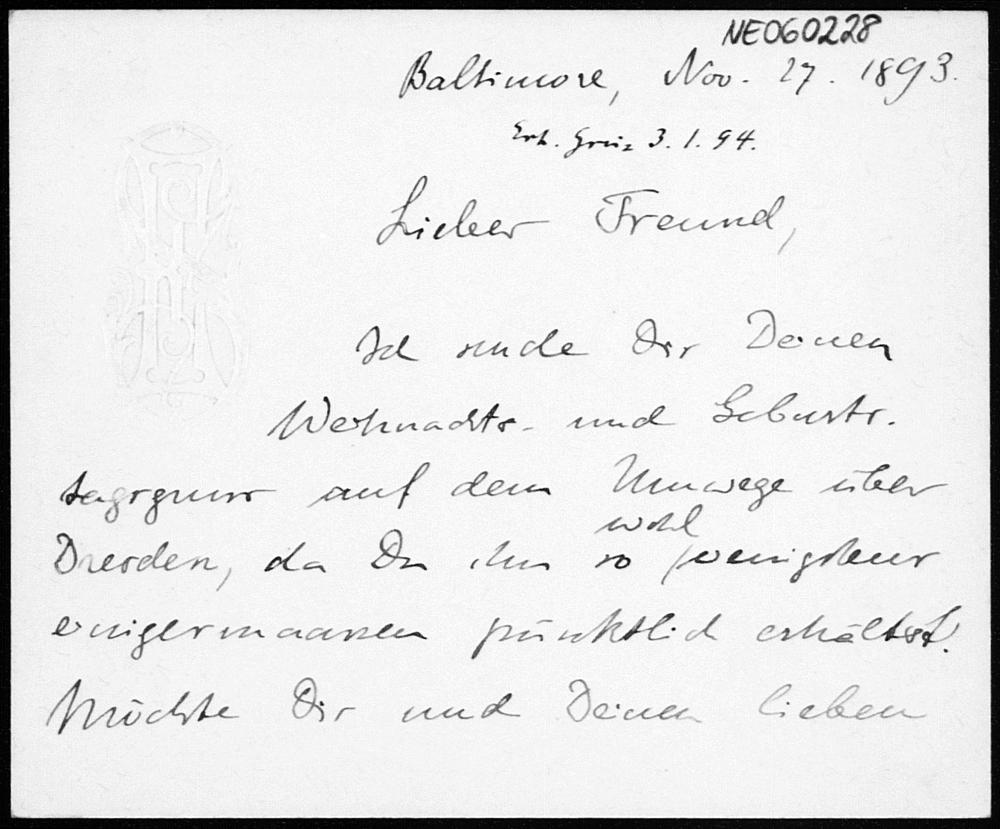 NE060228
Baltimore, Nov. 27. 1893.
Erh. Greiz 3. 1. 94.
Lieber Freund,
Ich sende Dir Deinen
Weihnachts- und Geburts-
tagsgruss auf dem Umwege über
wohl
Dresden, da Du ihn so wenigstens
einigermaassen pünktlich erhältst.
Möchte Dir und Deinen lieben